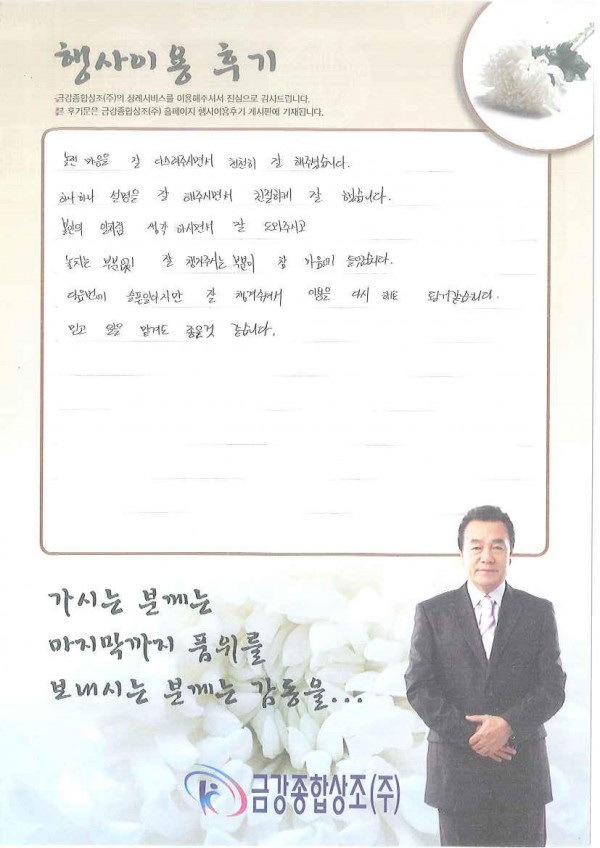 행사이용 후기
금강종합상조(주)의 상례서비스를 이용해주셔서 진심으로 감사드립니다.
본 후기문은 금강종합상조(주) 홈페이지 행사이용후기 게시판에 기재됩니다.
놀랜 마음을 잘 다스려주시면서 천천히 잘 해주셨습니다.
하나하나 설명을 잘 해주시면서 친절하게 잘 했습니다.
본인의 일처럼 생각 하시면서 잘 도와주시고
놓치는 부분 잘 챙겨주시는 부분이 참 마음에 들었습니다.
다음번에 슬픈일이지만 잘 챙겨주셔서 이용을 다시 해도 될거같습니다.
믿고 일을 맡겨도 좋을것 같습니다.
가시는 분께는
마지막까지 품위를
보내시는 분께는 감동을...
금강종합상조(주)